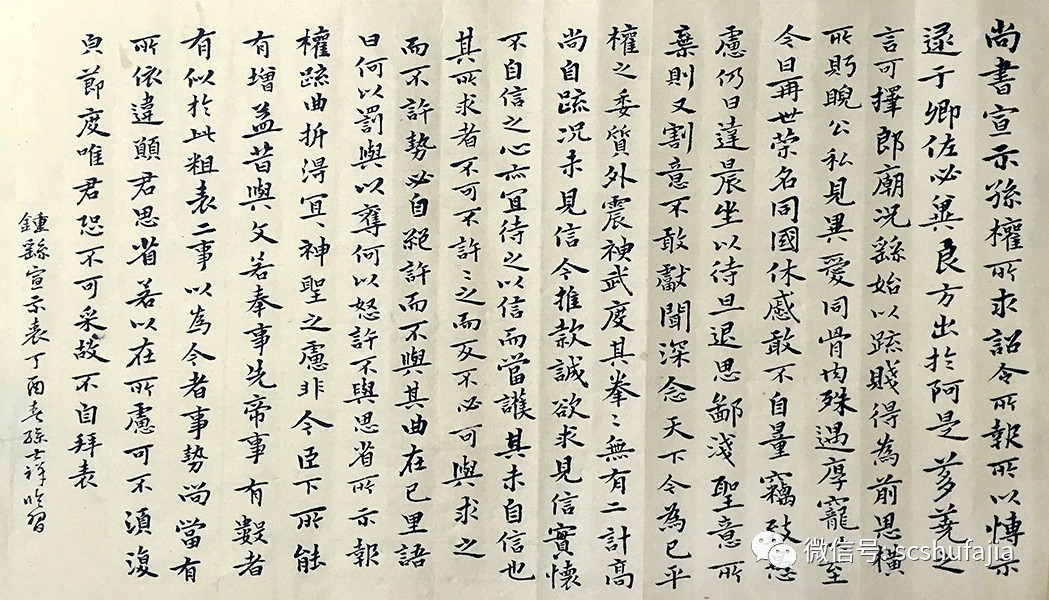 尚書宣示孫權所求詔令所報所以博示
逮于卿佐必冀良方出於阿是芻蕘之
言可擇郎廟況繇始以疏賤得為前恩橫
所盻睨公私見異愛同骨肉殊遇厚寵至
今日再世榮名同國休慼敢不自量竊致愚
慮仍日達晨坐以待旦退思鄙淺聖意所
棄則又割意不敢獻聞深念天下今為已平
權之委質外震神武度其拳〻無有二計高
尚自疏況未見信今推款誠欲求見信實懷
不自信之心亦宜待之以信而當護其未自信也
其所求者不可不許〻之而反不必可與求之
而不許勢必自絕許而不與其曲在己里語
曰何以罰與以奪何以怒許不與思省所示報
權疏曲折得宜神聖之慮非今臣下所能
有增益昔與文若奉事先帝事有數者
有似於此粗表二事以為今者事勢尚當有
所依違願君思省若以在所慮可不須復
皃節度唯君恐不可采故不自拜表
鍾繇宣示表丁酉春孫士祥臨習
微信号: scshufajia